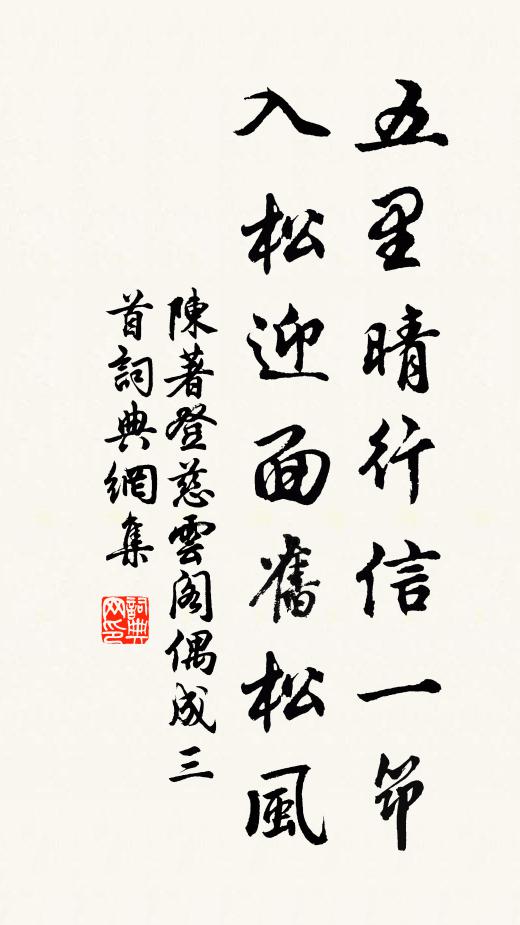 五里晴行信一筇
入松迎面舊松風
陳著登慈雲閣偶成三
首詞典網集
詞典
网印